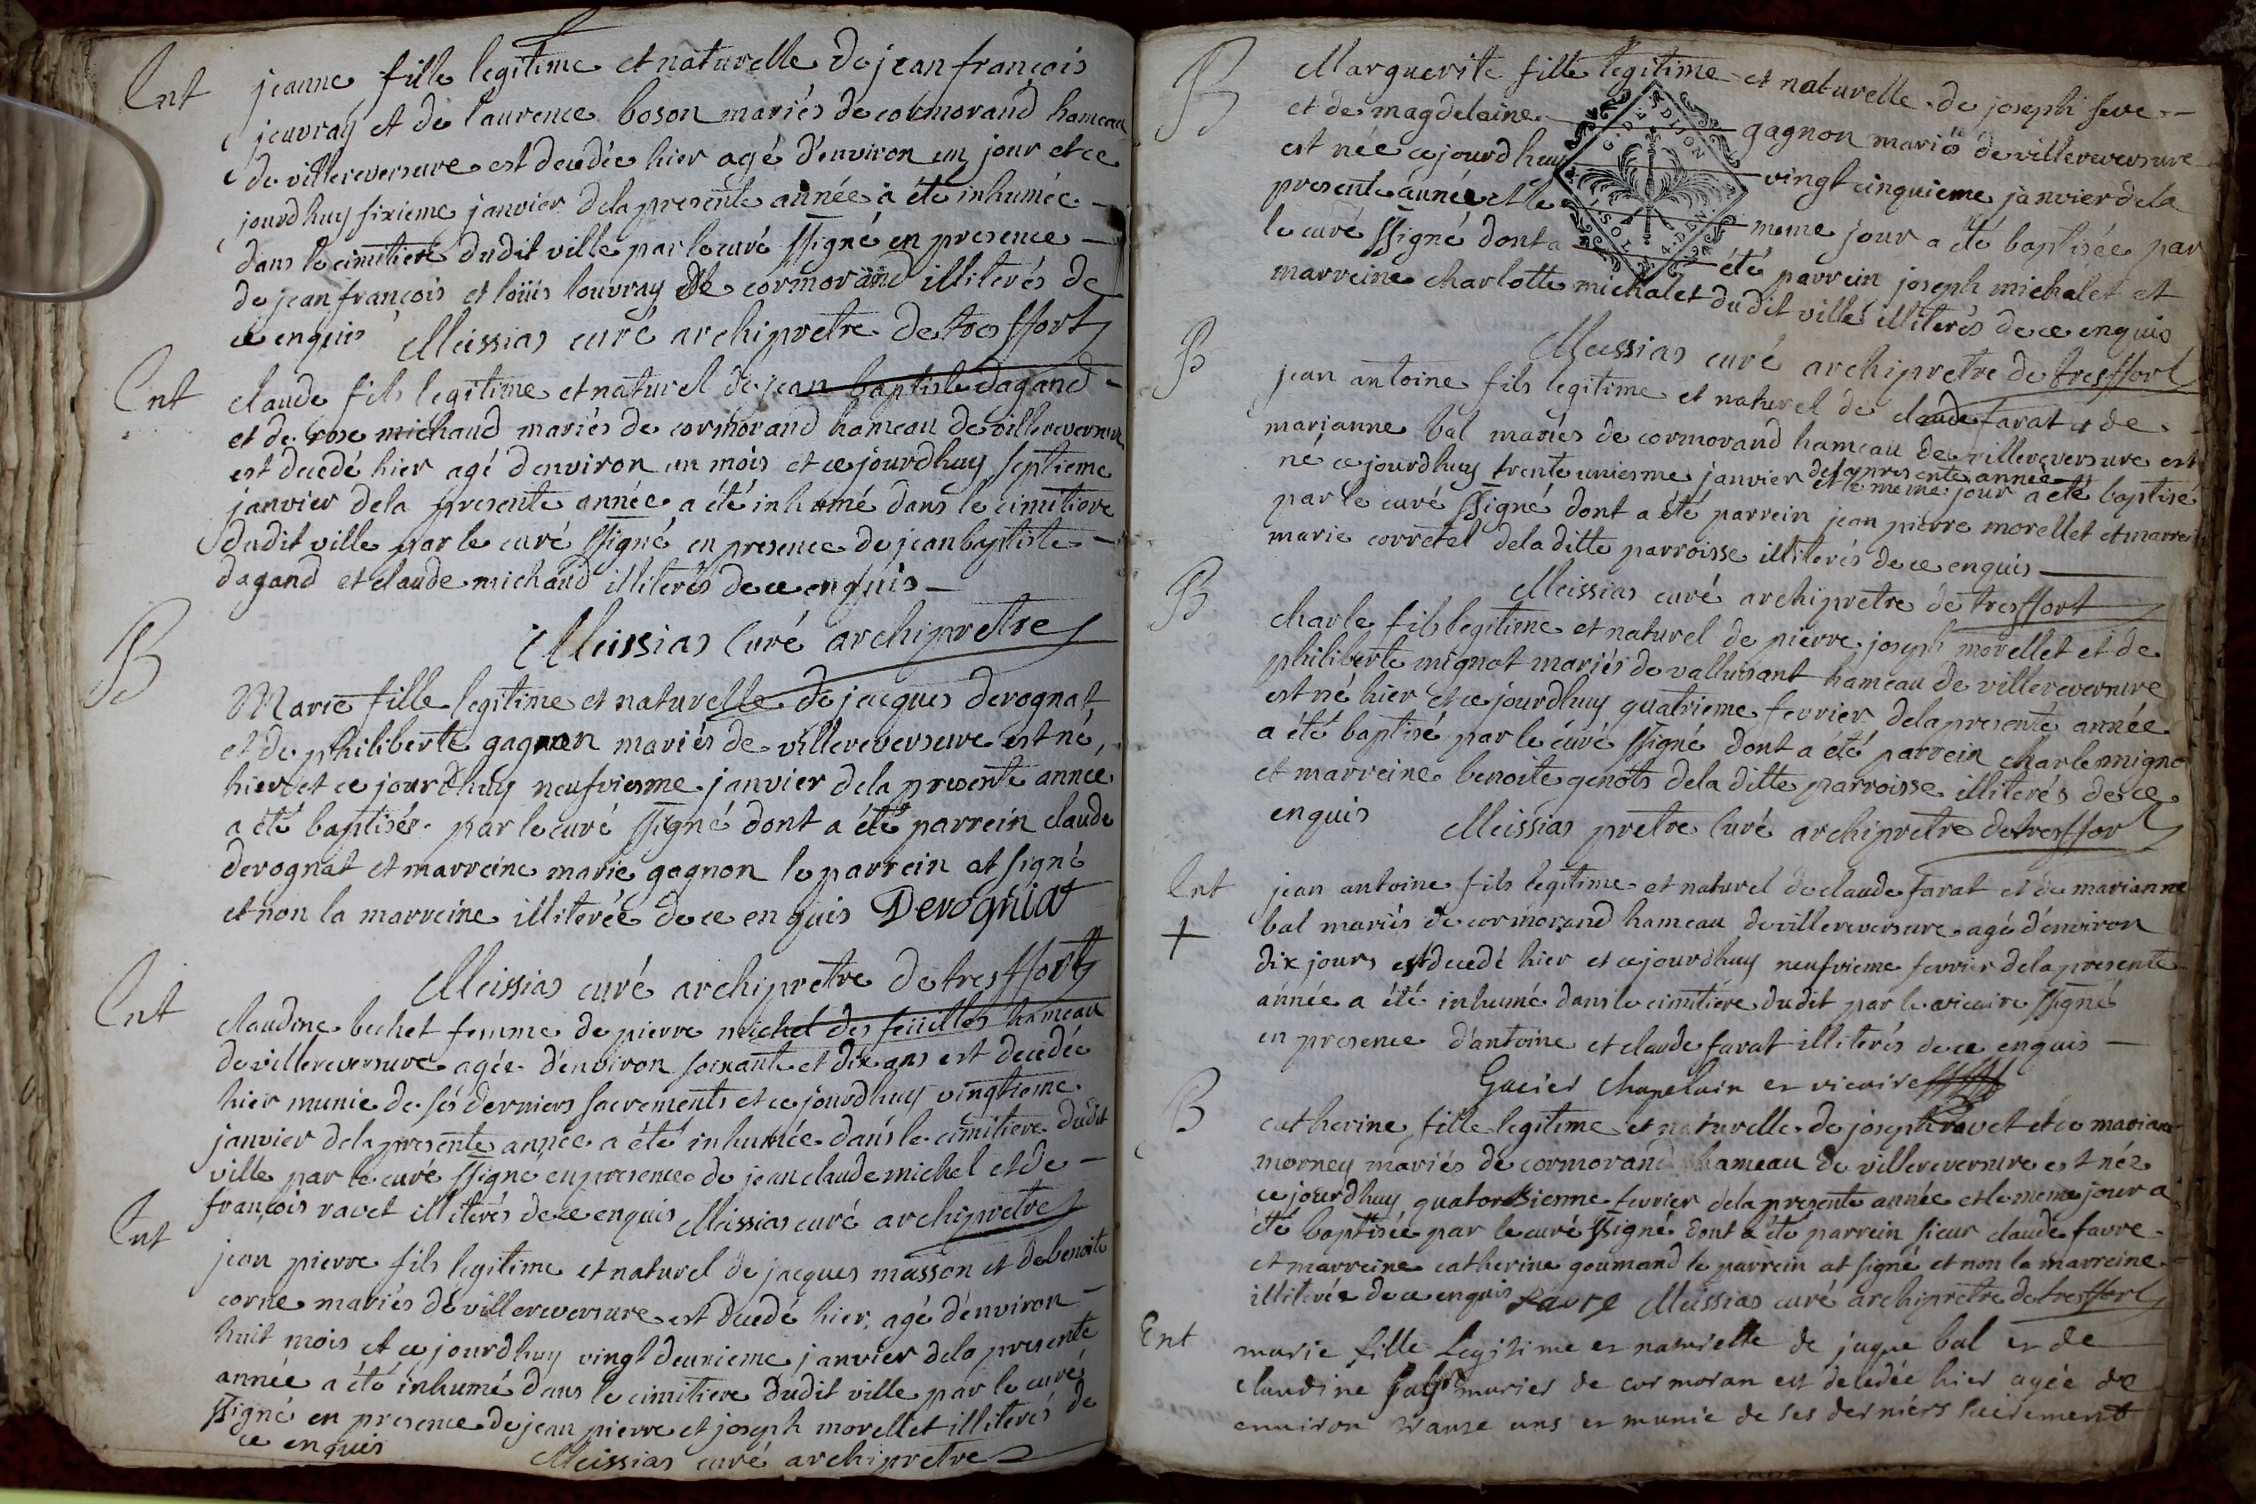 Ent
jeanne fille legitime et naturelle de jean françois
jeuvray et de laurence boson mariés de cormorand hameau
de villereversure est decedée hier agé d'environ un jour et ce
jourdhuy sixieme janvier dela presente année a été inhumée
dans le cimitiere dudit ville par le curé ssigné en presence
de jean françois et loüis louvray de cormorand illiterés de
ce enquis Meissias curé archipretre de tresffort
Ent
claude fils legitime et naturel de jean baptiste dagand
et de rose michaud mariés de cormorand hameau de villereversure
est decedé hier agé d'environ un mois et ce jourdhuy septieme
janvier dela presente année a été inhumé dans le cimitiere
dudit ville par le curé ssigné en presence de jean baptiste
dagand et claude michaud illiterés de ce enquis
Meissias Curé archipretre
B
Marie fille legitime et naturelle de jacques derognat
et de philiberte gagnon mariés de villereversure est né
hier et ce jourdhuy neufviesme janvier dela presente annee
a été baptisée par le curé ssigné dont a été parrein claude
derognat et marreine marie gagnon le parrein at signé
et non la marreine illiterée de ce enquis Derogniat
Meissias curé archipretre de tresffort
Ent
claudine bechet femme de pierre michel des feüilles hameau
de villereversure agée d'environ soixante et dix ans est decedée
hier munie de sés derniers sacrements et ce jourdhuy vingtieme
janvier dela presente année a été inhumée dans le cimitiere dudit
ville par le curé ssigné en presence de jean claude michel et de
françois ravet illiterés de ce enquis Meissias curé archipretre
Ent
jean pierre fils legitime et naturel de jacques masson et de benoite
corne mariés de villereversure est decedé hier agé d'environ
huit mois et ce jourdhuy vingt deuxieme janvier dela presente
année a été inhumé dans le cimitiere dudit ville par le curé
ssigné en presence de jean pierre et joseph morellet illiterés de
ce enquis Meissias curé archipretre
B
Marguerite fille legitime et naturelle de joseph seve
et de magdelaine gagnon mariés de villereversure
est née ce jourdhuy vingt cinquieme janvier dela
presente année et le meme jour a été baptisée par
le curé ssigné dont a été parrein joseph michalet et
marreine charlotte michalet dudit ville illiterés de ce enquis
Meissias curé archipretre de tresffort
B
jean antoine fils legitime et naturel de claude farat et de
marianne bal mariés de cormorand hameau de villereversure est
né ce jourdhuy trente uniesme janvier dela presente année et le meme jour a été baptisé
par le curé ssigné dont a été parrein jean pierre morellet et marreine
marie corretel dela ditte parroisse illiterés de ce enquis
Meissias curé archipretre de tresffort
B
charle fils legitime et naturel de pierre joseph morellet et de
philiberte mignot mariés de valluisant hameau de villereversure
est né hier et ce jourdhuy quatrieme fevrier dela presente année
a été baptisé par le curé ssigné dont a été parrein charle migno
et marreine benoite genots dela ditte parroisse illiterés de ce
enquis Meissias pretre Curé archipretre de tresffort
Ent
jean antoine fils legitime et naturel de claude farat et de marianne
bal mariés de cormorand hameau de villereversure agé d'environ
dix jours est decedé hier et ce jourdhuy neufvieme fevrier dela presente
année a été inhumé dans le cimitiere dudit par le vicaire ssigné
en presence d'antoine et claude farat illiterés de ce enquis
Gacier Chapelain et vicaire
B
catherine fille legitime et naturelle de joseph ravet et de marianne
morney mariés de cormorand hameau de villereversure est née
ce jourdhuy quatorsieme fevrier dela presente année et le meme jour a
été baptisée par le curé ssigné dont a été parrein sieur claude favre
et marreine catherine goumand le parrein at signé et non la marreine
illiterée de ce enquis Favre Meissias curé archipretre de tresffort
Ent
marie fille Legitime et naturelle de jaque bal et de
claudine mariés de cormoran est decedée hier agée de
environ ans et munie de ses derniérs sacrement